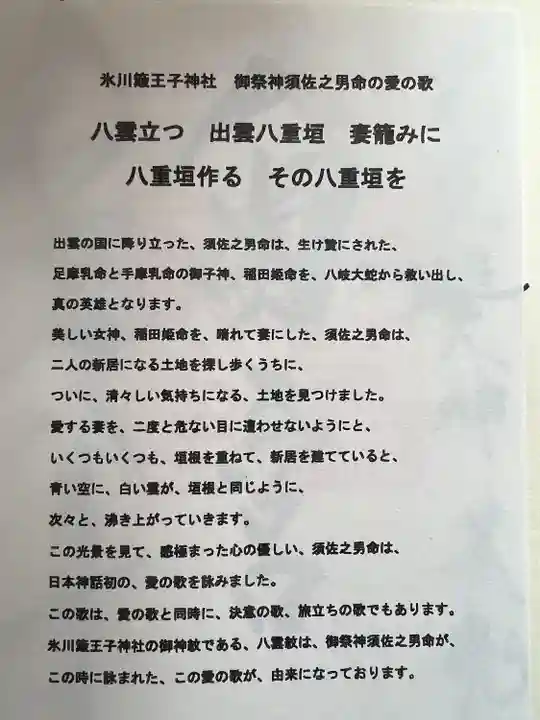 氷川簸王子神社　御祭神須佐之男命の愛の歌
八雲立つ　出雲八重垣　妻籠みに
八重垣作る　その八重垣を
出雲の国に降り立った、須佐之男命は、生け贄にされた、
足摩乳命と手摩乳命の御子神、稲田姫命を、八岐大蛇から救い出し、
真の英雄となります。
美しい女神、稲田姫命を、晴れて妻にした、須佐之男命は、
二人の新居になる土地を探し歩くうちに、
ついに、清々しい気持ちになる、土地を見つけました。
愛する妻を、二度と危ない目に遭わせないようにと、
いくつもいくつも、垣根を重ねて、新居を建てていると、
青い空に、白い雲が、垣根と同じように、
次々と、沸き上がっていきます。
この光景を見て、感極まった心の優しい、須佐之男命は、
日本神話初の、愛の歌を詠みました。
この歌は、愛の歌と同時に、決意の歌、旅立ちの歌でもあります。
氷川簸王子神社の御神紋である、八雲紋は、御祭神須佐之男命が、
この時に詠まれた、この愛の歌が、由来になっております。